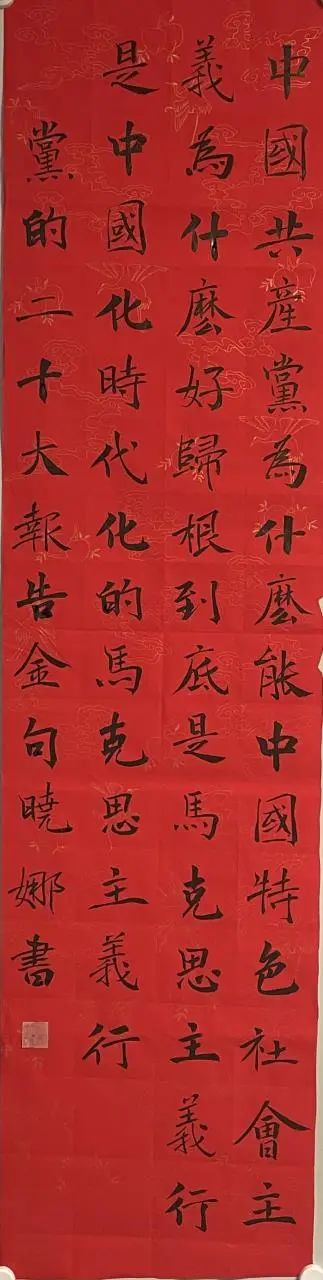 中國共產黨為什麼能中國特色社會主
義為什麼好歸根到底是馬克思主義行
是中國化時代化的馬克思主義行
黨的二十大報告金句曉娜書